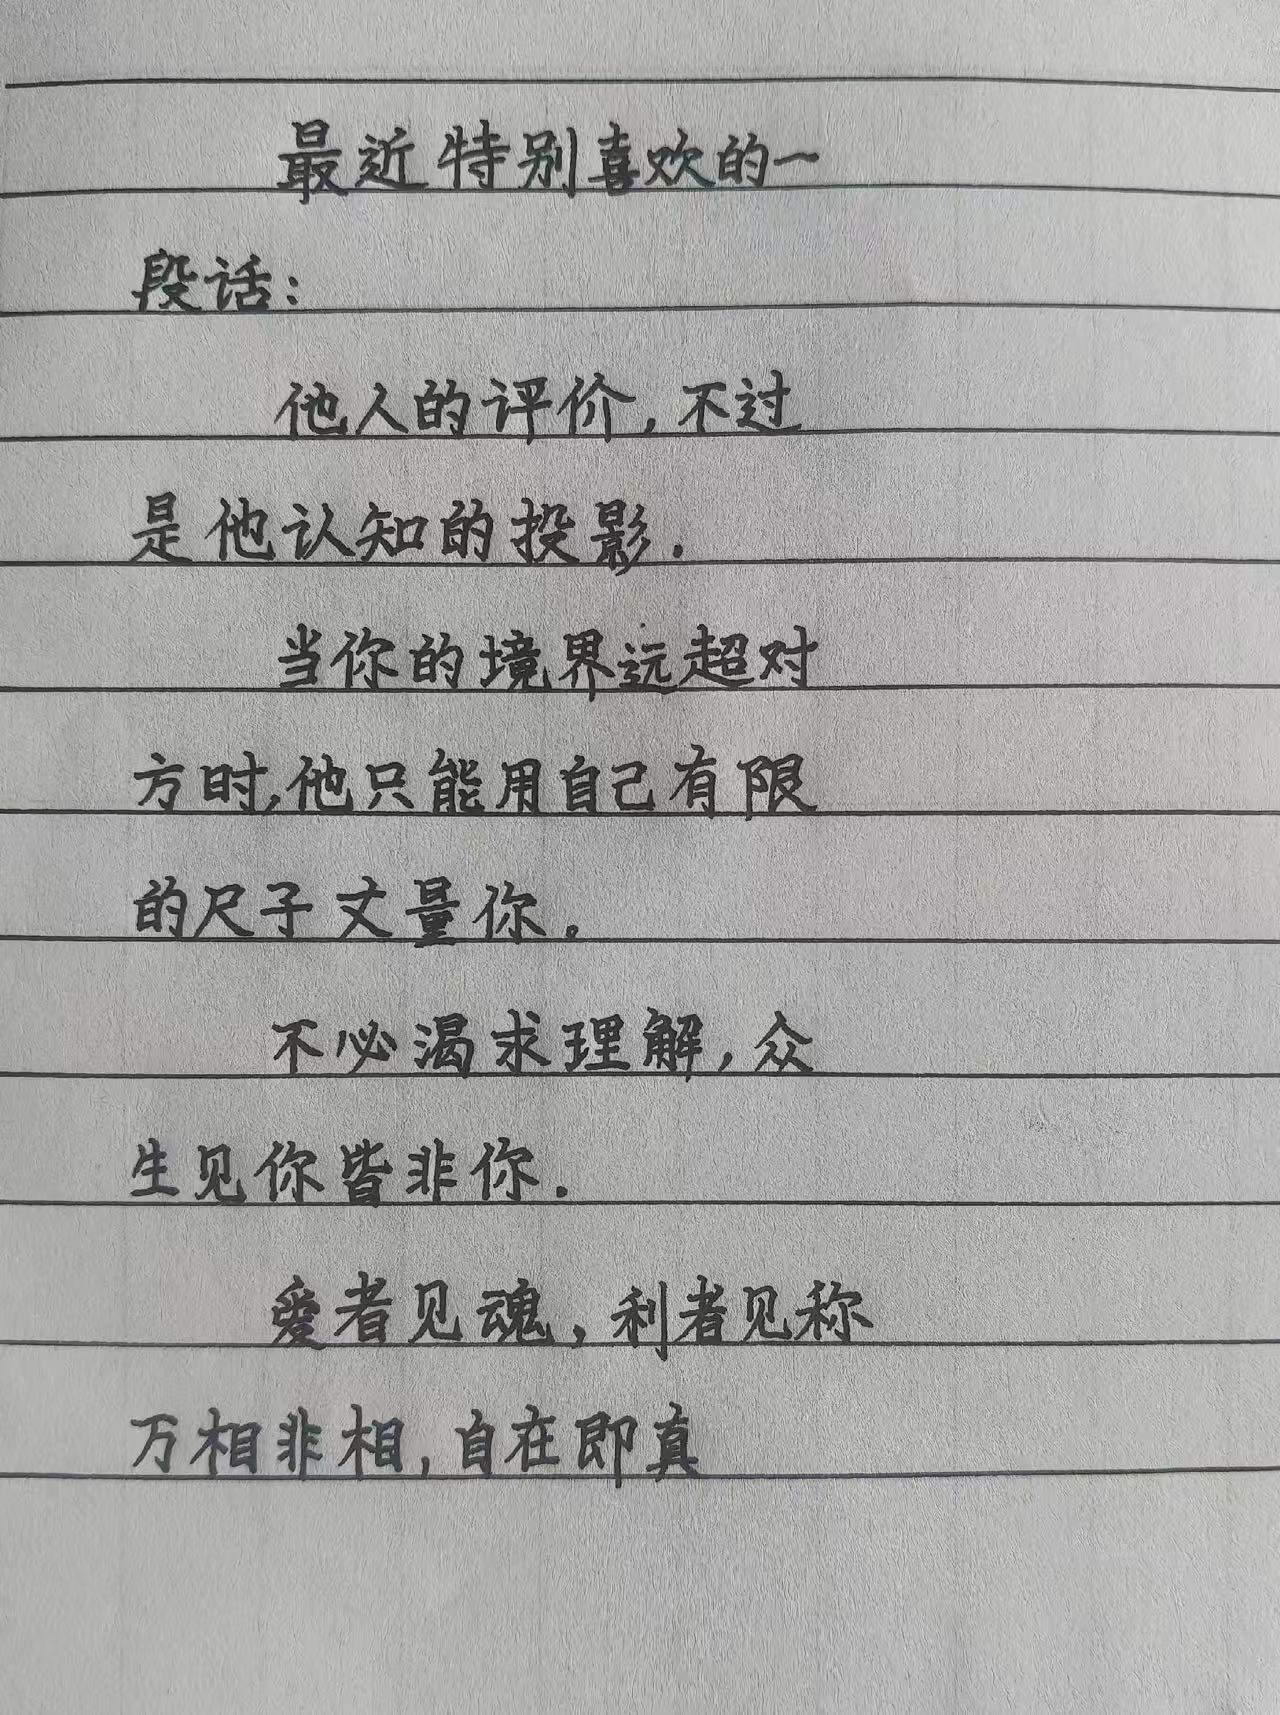 最近特别喜欢的一
段话:
他人的评价,不过
是他认知的投影.
当你的境界远超对
方时,他只能用自己有限
的尺子丈量你。
不必渴求理解,众
生见你皆非你.
爱者见魂,利者见称
万相非相,自在即真